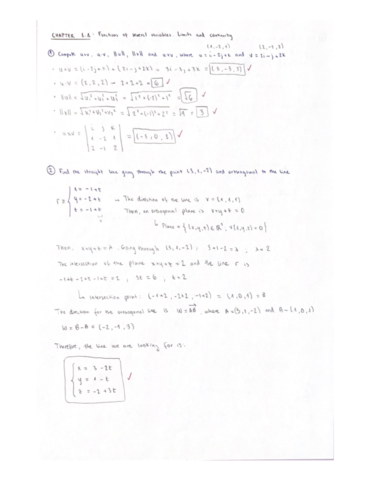 CHAPTER 1.1: Functions of several variables. Limits and continuity
① Compute u+v, u·v, ‖u‖, ‖v‖ and u×v, where u = i-2j+k and v = 2i-j+2k
· u+v = (i-2j+k) + (2i-j+2k) = 3i-3j+3k = (3,-3,3)
② Find the straight line going through the point (3,1,-2) and orthogonal to the line
r≡ { x = -1+t
y = -2+t
z = -1+t
→ The direction of the line is v = (1,1,1)
Then, an orthogonal plane is x+y+z = D
Then: x+y+z = D. Going through (3,1,-2);
The intersection of the plane x+y+z = 2 and the line r is
-1+t-2+t-1+t = 2; 3t = 6; t = 2
↳ intersection point: (-1+2, -2+2, -1+2) = (1,0,1) = B
The direction for the orthogonal line is w = AB, where A = (3,1,-2) and B = (1,0,1)
w = B-A = (-2,-1,3)
Therefore, the line we are looking for is:
{ x = 3-2t
y = 1-t
z = -2+3t